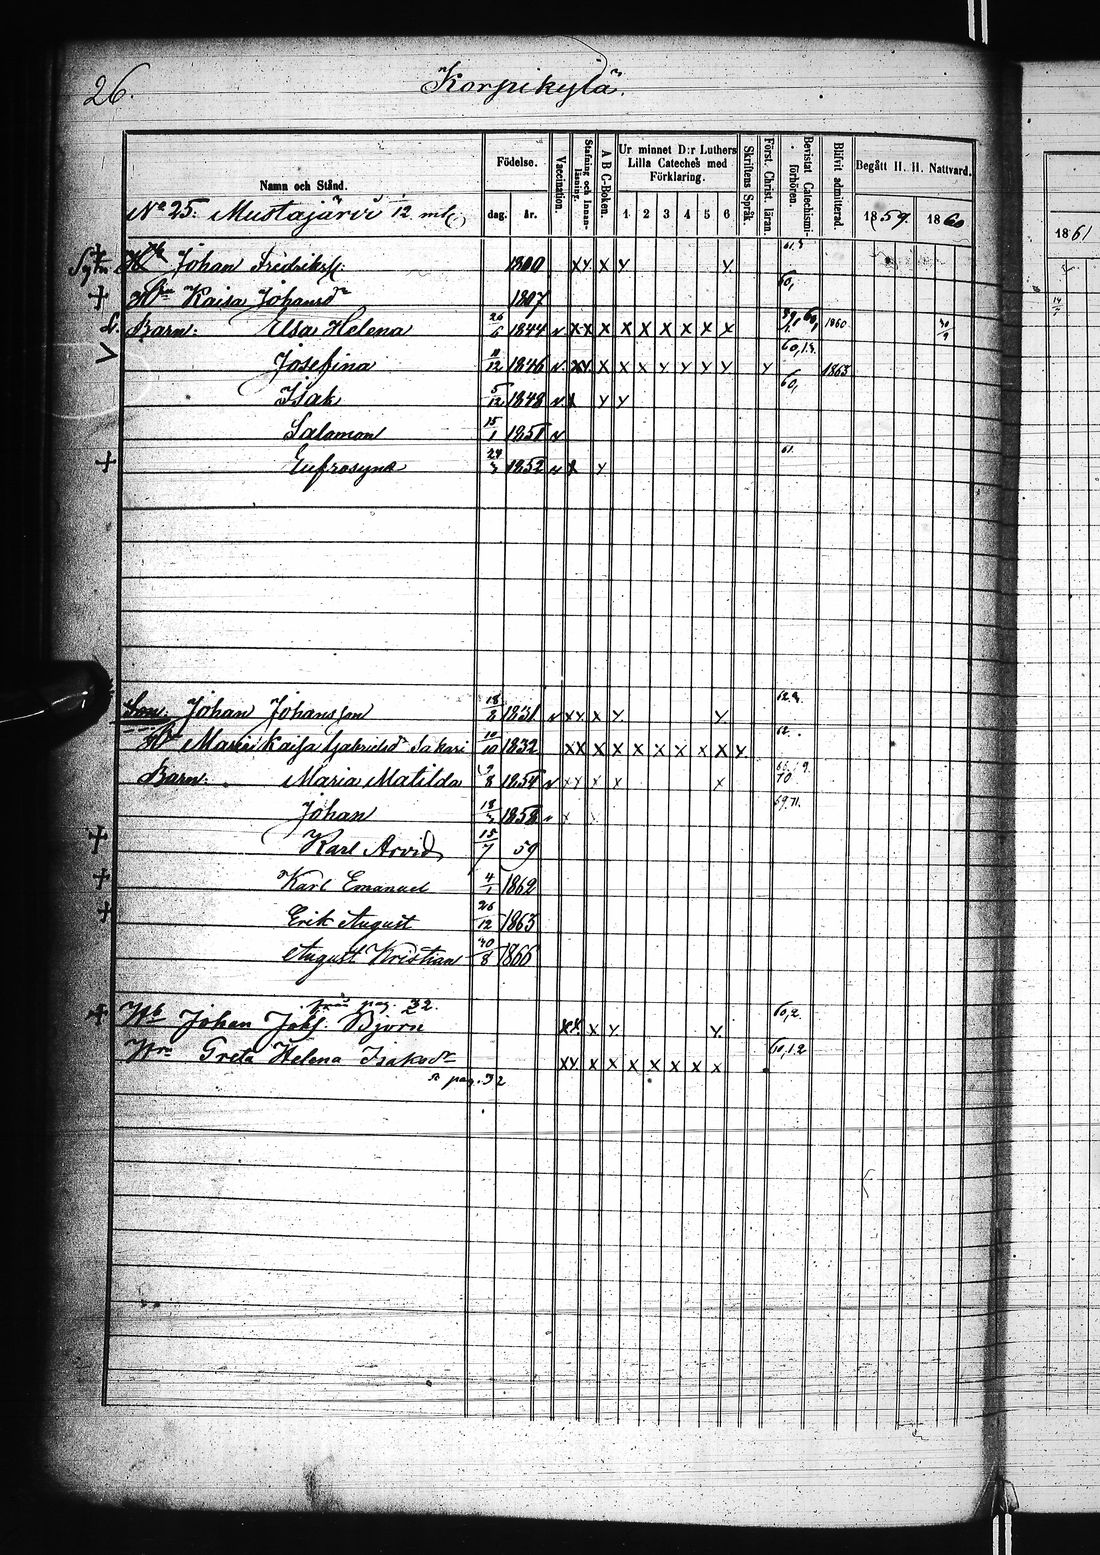 26.
Korpikylä.
Namn och Stånd.
Födelse.
dag. år.
Vaccination.
Stafning och Innanläsning.
A B C-Boken.
Ur minnet D:r Luthers Lilla Cateches med Förklaring.
1 2 3 4 5 6
Skriftens Språk.
Först. Christ. läran.
Bevistat Catechismiförhören.
Blifvit admitterad.
Begått H. H. Nattvard.
1859. 1860
1861
No 25. Mustajärvi 1/12 mtl
Johan Fredrikss. 1800 x y x y y
+ Kaisa Johansdr 1807 60,
Barn: Elsa Helena 26/6 1844 v x x x x x x x x x 1860
Josefina 11/12 1846 v. x y x x x y y y y y 1863
Isak 5/12 1848 v y y 60,
Salomon 15/1 1851 v
+ Eufrosyne 1852 v y 61.
Son. Johan Johansson 18/2 1831 v x y x y y
Maria Kaisa Gabrielsdr Sakari 10/10 1832 x x x x x x x x x y
Barn: Maria Matilda 1854 v x y x x x
Johan 1858 69.71.
+ Karl Arvid 15/7 59
+ Karl Emanuel 4/1 1862
+ Erik August 26/12 1863
August Kristian 30/8 1866
från pag. 32.
+ Johan Johs. Björn x x x y y 60,2.
Greta Helena Isaksdr x y x x x x x x 60.12
pag. 32